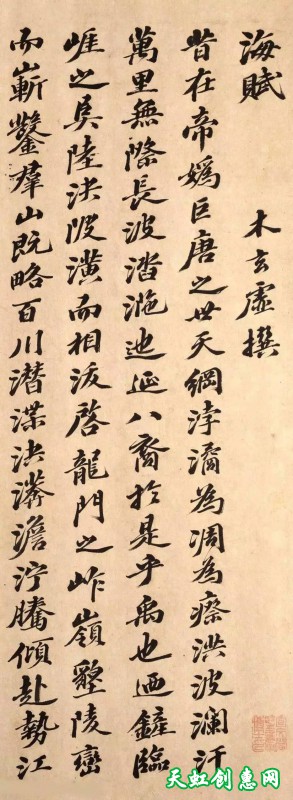 海賦 木玄虛撰
昔在帝媯巨唐之世天綱浡潏為凋為瘵洪波瀾汗
萬里無際長波涾沲迆延八裔於是乎禹也迺鏟臨
崕之阜陸決陂潢而相沷啓龍門之岞嶺墾陵巒
而嶄鑿羣山既略百川潛渫泱漭澹泞騰傾赴勢江
天虹创惠网